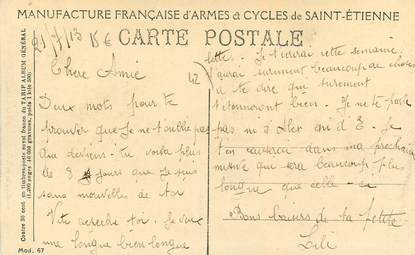 MANUFACTURE FRANÇAISE d'ARMES et CYCLES de SAINT-ÉTIENNE
CARTE POSTALE
15€
12
Chère Amie
Deux mots pour te
prouver que je ne t'oublie pas
que deviens-tu voilà plus
de 8 jours que je suis
sans nouvelles de toi
Vite dépêche toi. Je veux
une longue bien longue
lettre. Je t'écrirai cette semaine
j'aurai surement beaucoup de choses
à te dire qui surement
t'étonneront bien. Je ne te parle
pas ni d'hier ni d'
t'en causerai dans ma prochaine
missive qui sera beaucoup plus
longue que celle-ci
Bons baisers de ta petite
Lili
Contre 30 cent. en timbres-poste envoi franco du TARIF ALBUM GÉNÉRAL
Mod. 67